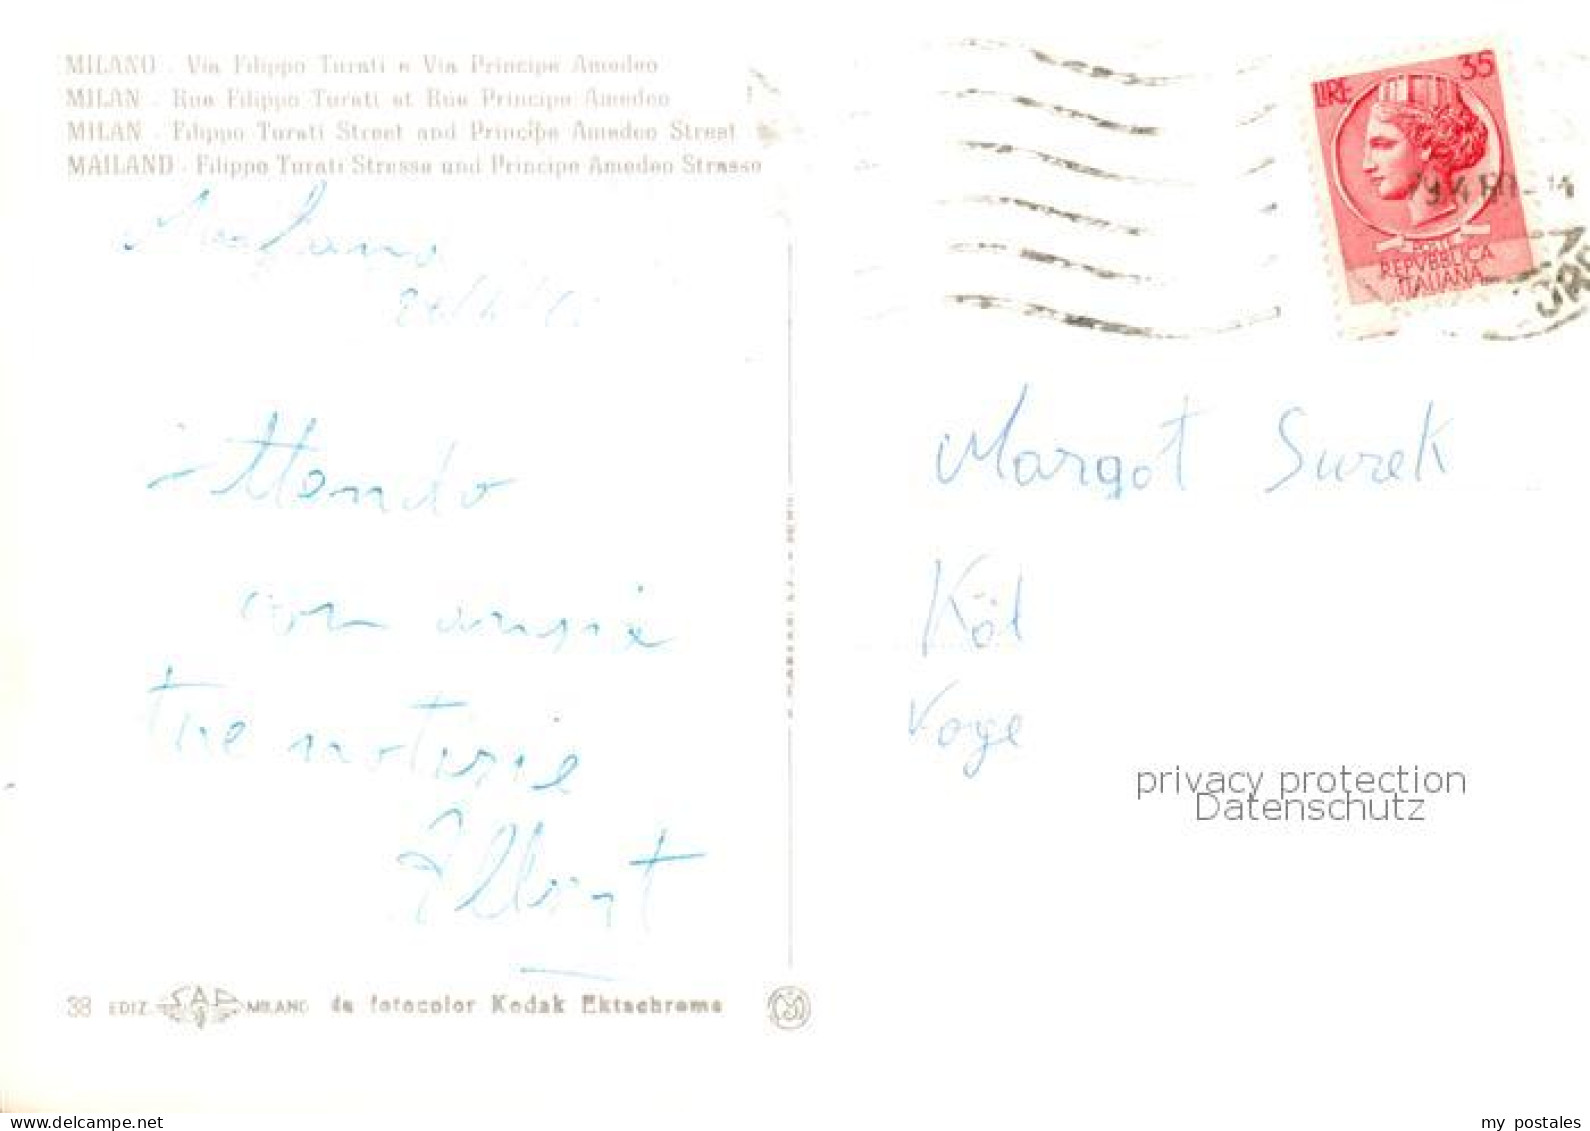 MILANO - Via Filippo Turati e Via Principe Amedeo
MILAN - Rue Filippo Turati et Rue Principe Amedeo
MILAN - Filippo Turati Street and Principe Amedeo Street
MAILAND - Filippo Turati Strasse und Principe Amedeo Strasse
Milano
LIRE 35
POSTE
REPVBBLICA
ITALIANA
Attendo
con ansia
tue notizie
Albert
Margot Surek
Köl
Voge
privacy protection
Datenschutz
38 EDIZ. SAP MILANO da fotocolor Kodak Ektachrome
www.delcampe.net
my_postales